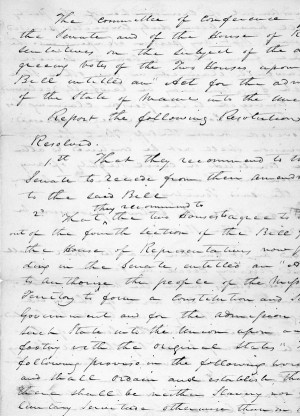 The committee of conference
the Senate and of the House of R
sentatives on the subject of the d
greeing votes of the Two Houses, upon
Bill entitled an "Act for the adm
of the State of Maine into the Uni
Report the following Resolution
Resolved.
1st That they recommend to th
Senate to recede from their amendm
to the said Bill
they recommend to
2d That the two Houses agree to
out of the fourth section of the Bill of
the House of Representatives now
ding in the Senate, entitled an "A
to authorize the people of the Miss
Territory to form a Constitution and S
Government and for the admission
such State into the Union upon an
footing with the original States"
following proviso in the following words
and shall ordain and establish, tha
there shall be neither Slavery nor
luntary servitude otherwise than in